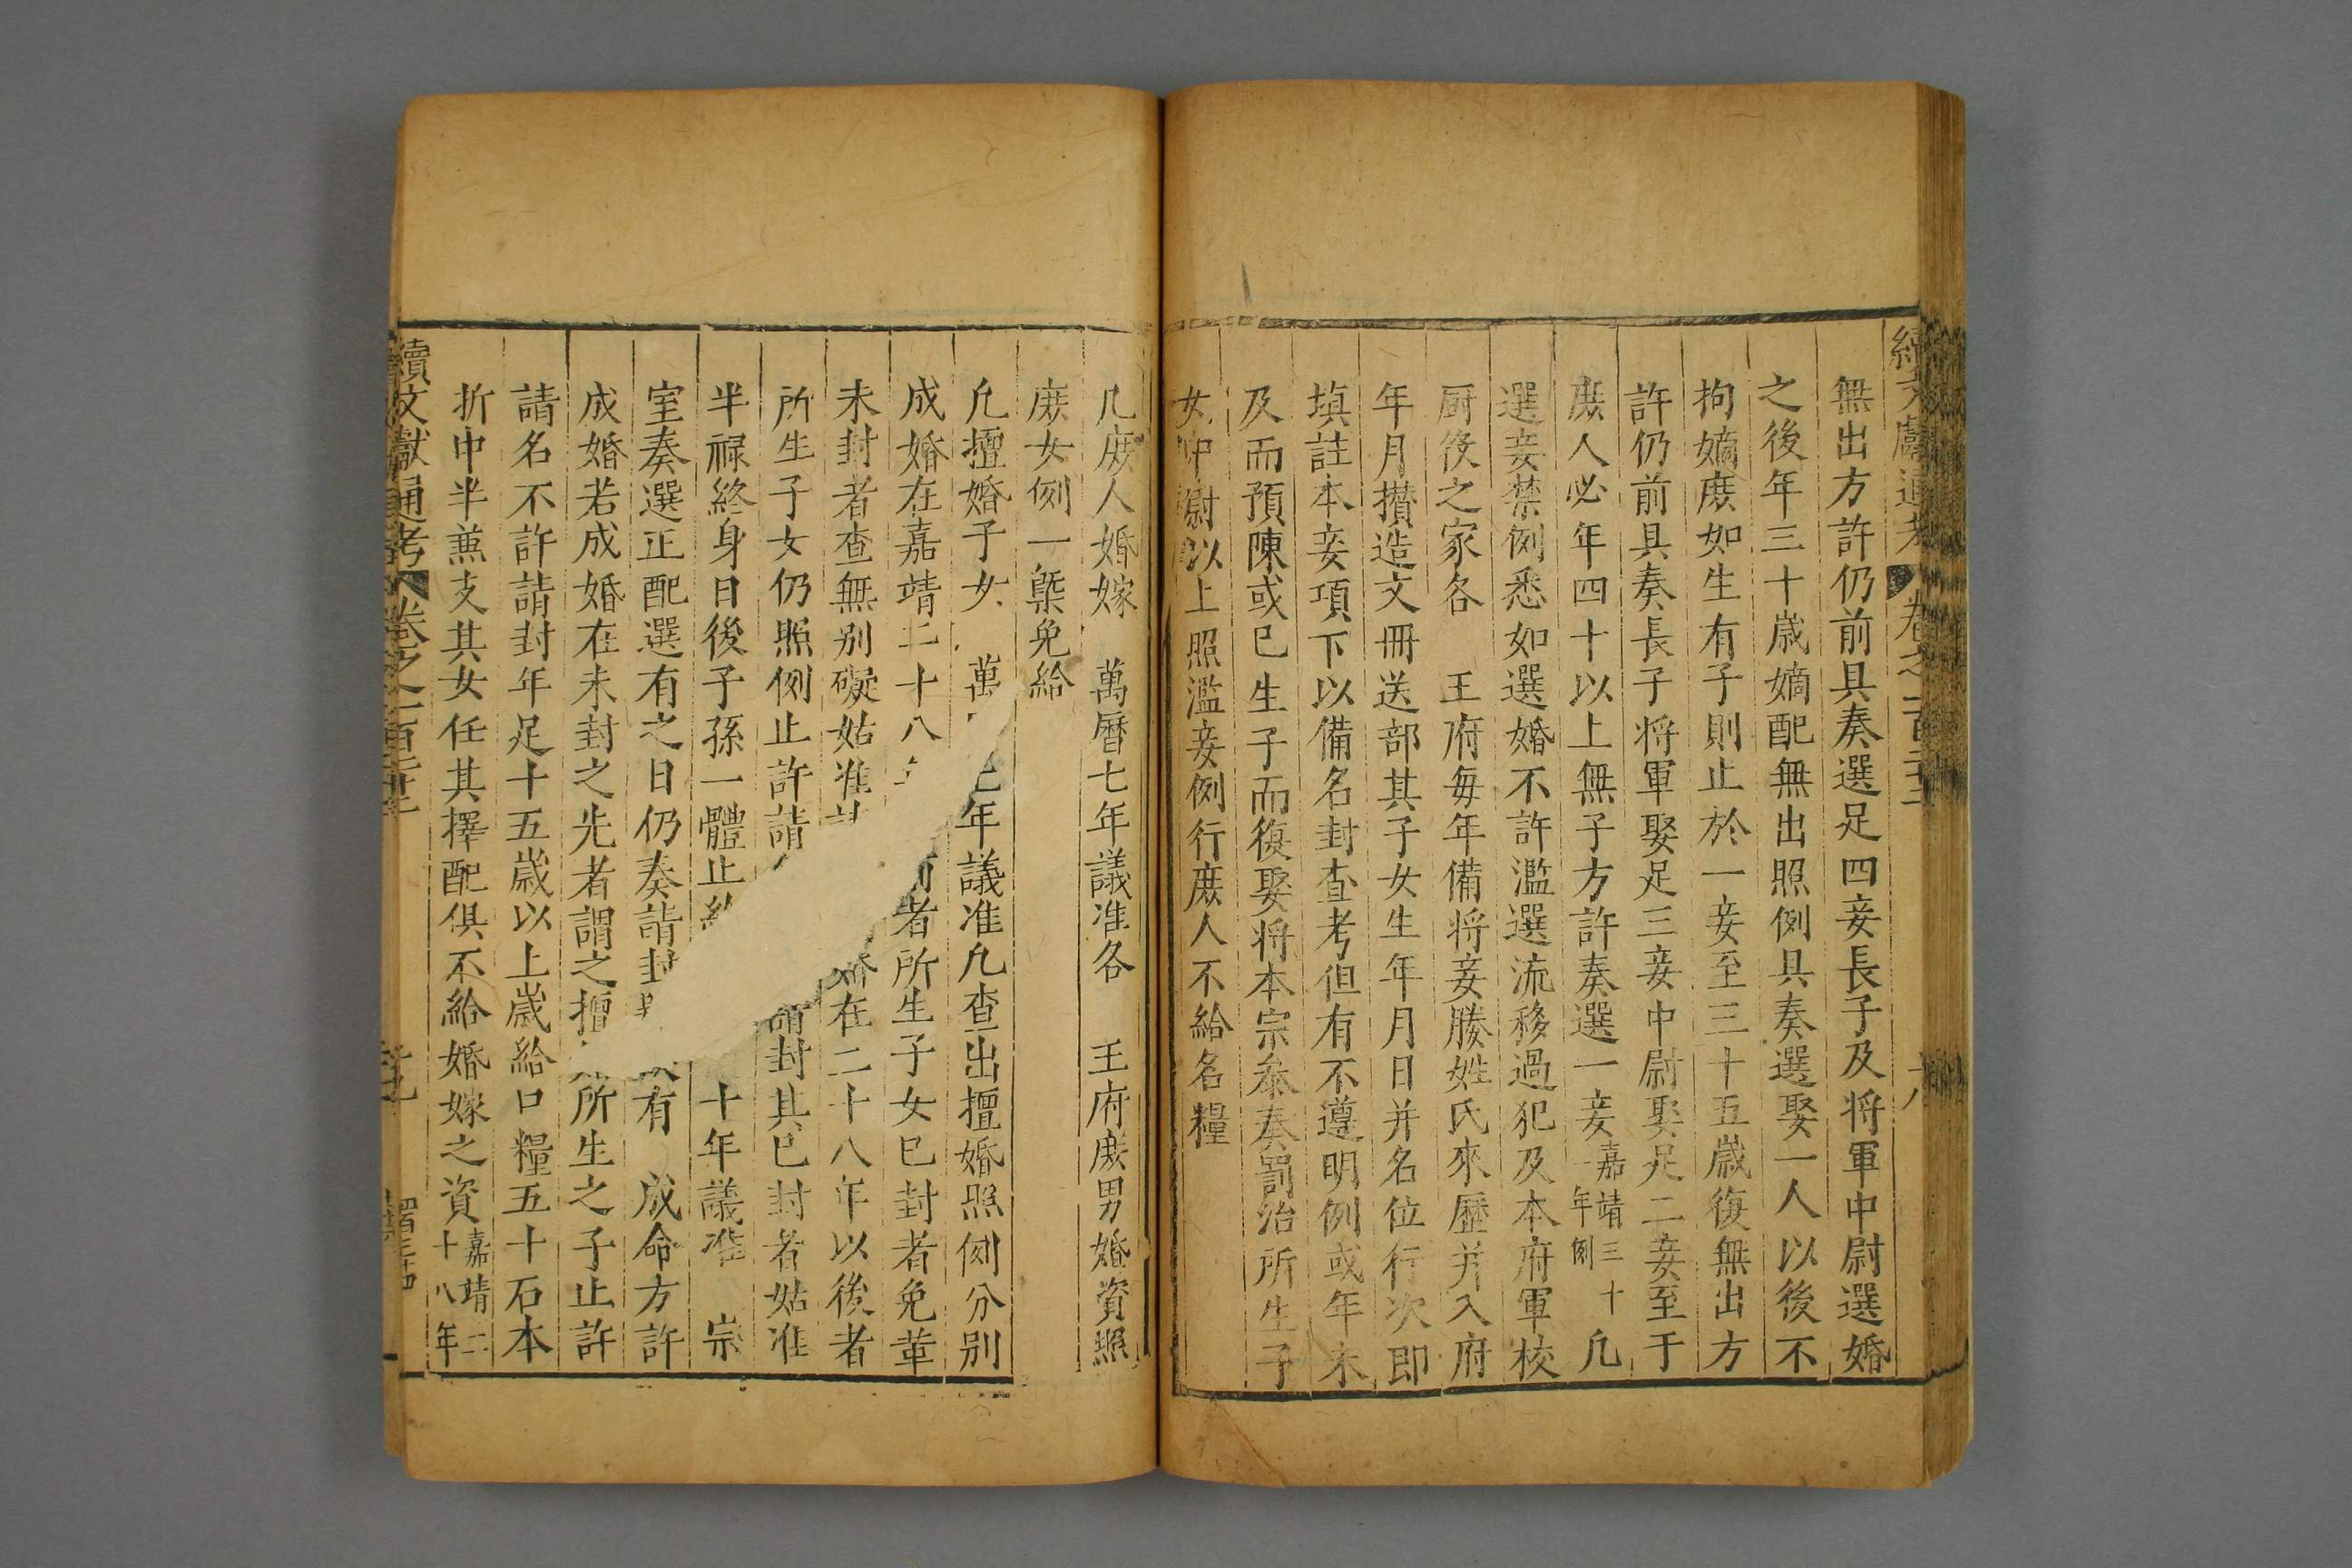 無出方許仍前具奏選足四妾長子及将軍中尉選婚
之後年三十歳嫡配無出照例具奏選娶一人以後不
拘嫡庻如生有子則止於一妾至三十五歳復無出方
許仍前具奏長子将軍娶足三妾中尉娶足二妾至于
庻人必年四十以上無子方許奏選一妾嘉靖三十年例凡
選妾禁例悉如選婚不許濫選流移過犯及本府軍校
厨役之家各王府毎年備将妾媵姓氏來歴并入府
年月攅造文冊送部其子女生年月日并名位行次即
填註本妾項下以備名封查考但有不遵明例或年未
及而預陳或已生子而復娶将本宗叅奏罰治所生子
女中尉以上照濫妾例行庻人不給名糧
凡庻人婚嫁萬暦七年議准各王府庻男婚資照
庻女例一槩免給
凡擅婚子女萬年議准凡查出擅婚照例分别
成婚在嘉靖二十八者所生子女已封者免革
未封者查無别礙姑准在二十八年以後者
所生子女仍照例止許請封其已封者姑准
半禄終身日後子孫一體止十年議准崇
室奏選正配選有之日仍奏請封有成命方許
成婚若成婚在未封之先者謂之擅所生之子止許
請名不許請封年足十五歳以上歳給口糧五十石本
折中半兼支其女任其擇配俱不給婚嫁之資嘉靖二十八年
續文獻通考卷之一百